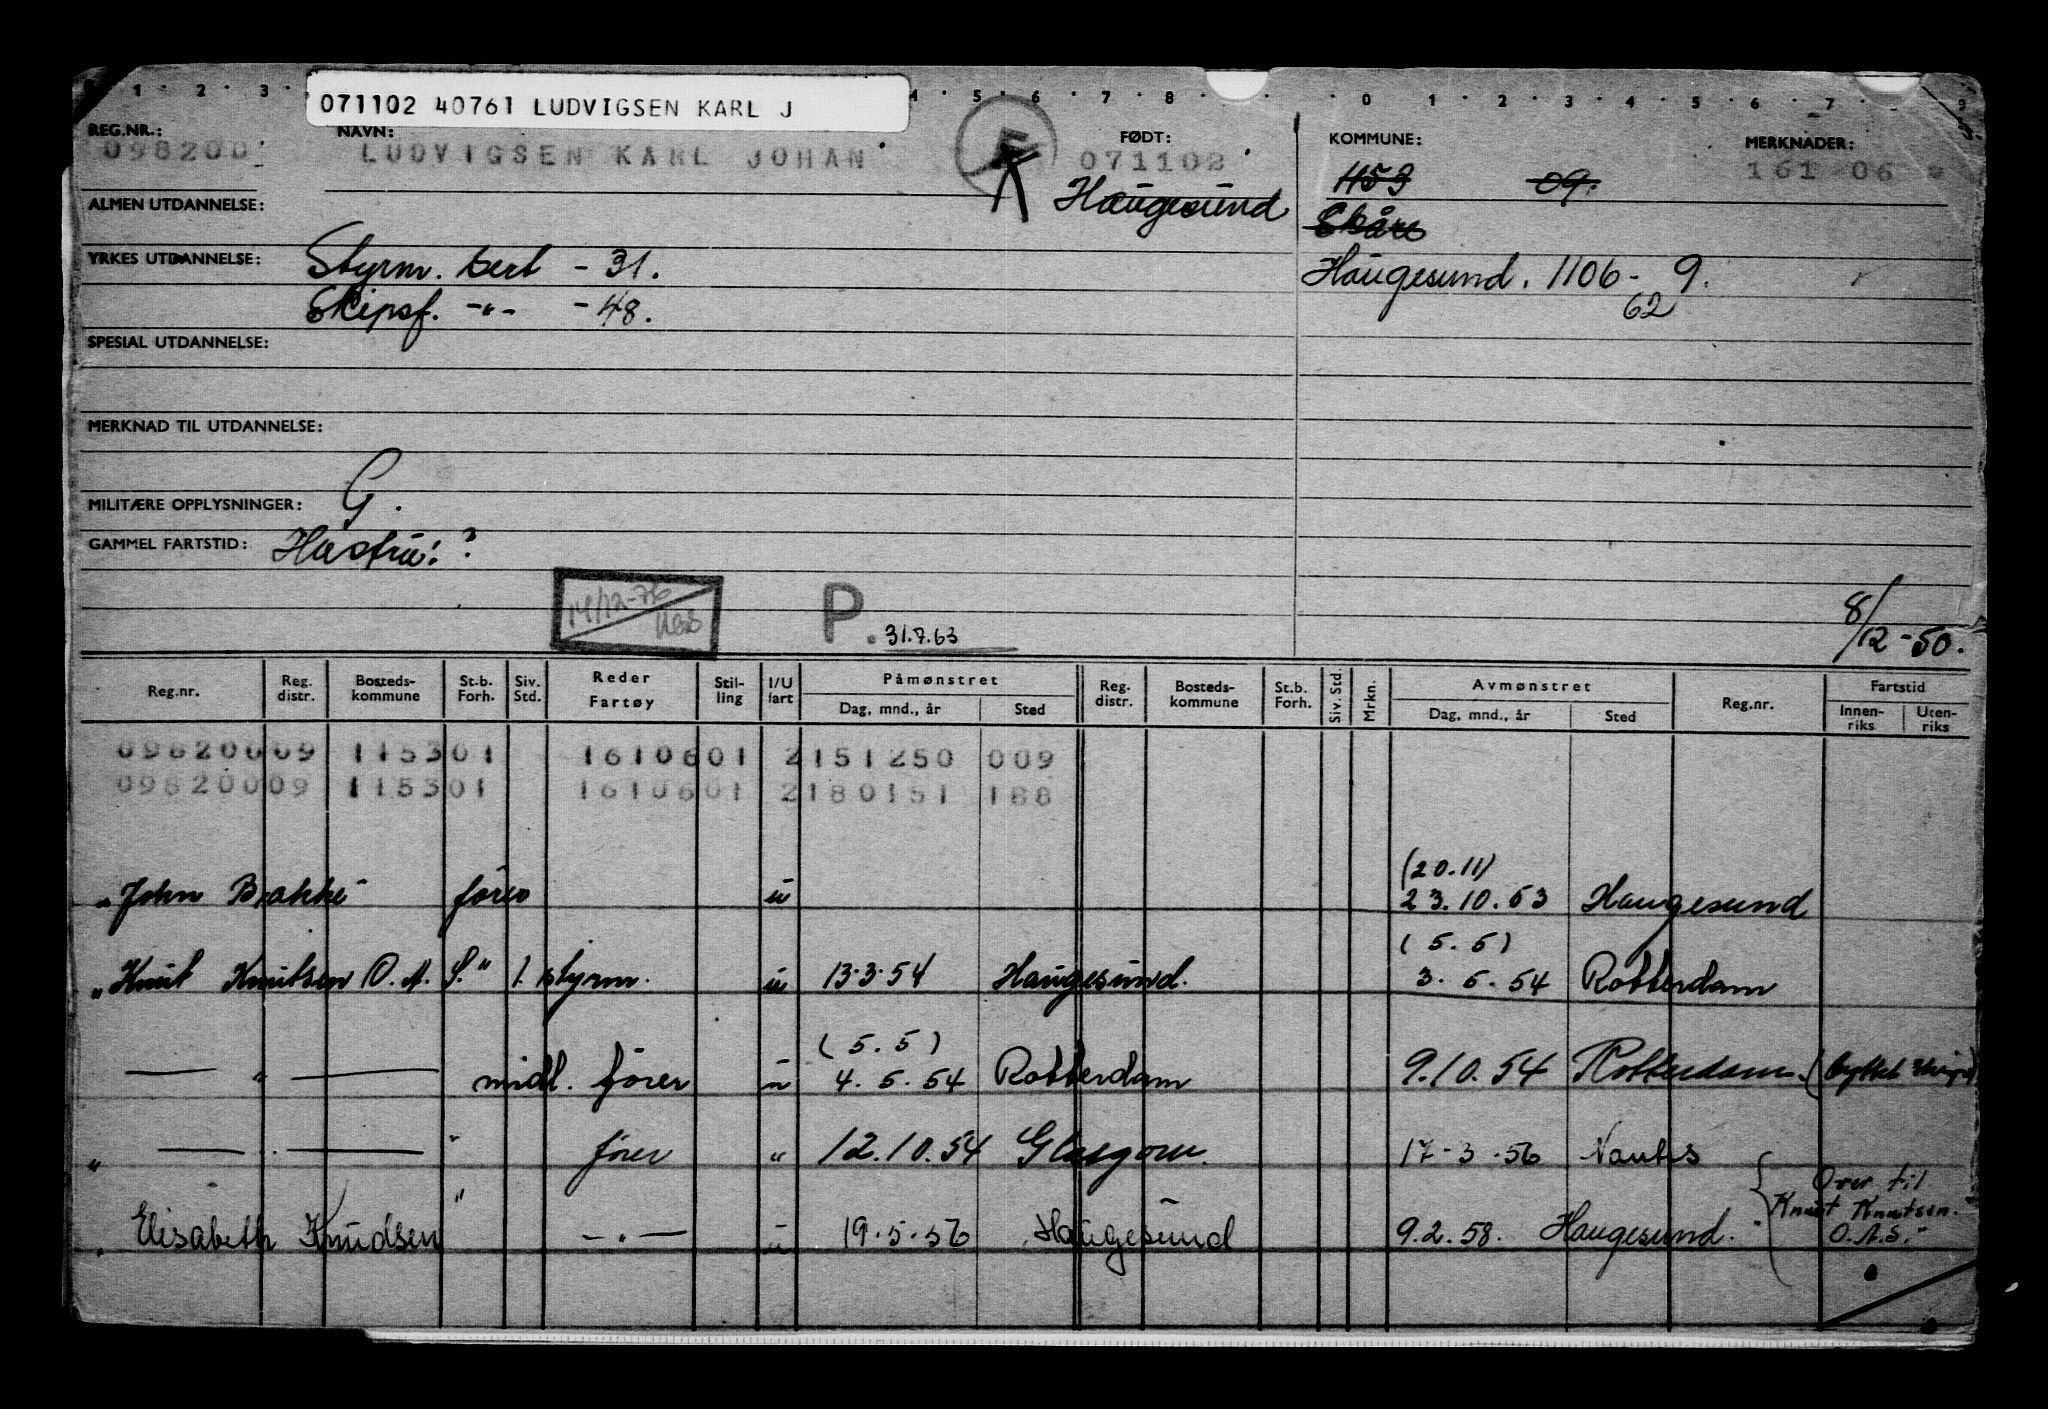 071102 40761 LUDVIGSEN KARL J
REG.NR.: NAVN: FØDT: KOMMUNE: MERKNADER:
098200 LUDVIGSEN KARL JOHAN 071102 1153 09. 161 06
ALMEN UTDANNELSE: Haugesund Skåre
YRKES UTDANNELSE: Styrm. sert - 31. Haugesund. 1106- 9.
Skipsf. -"- - 48. 62
SPESIAL UTDANNELSE:
MERKNAD TIL UTDANNELSE:
MILITÆRE OPPLYSNINGER: G.
GAMMEL FARTSTID: Hustru: ?
14/12-76
P. 31.7.63 8/12-50.
Reg.nr. Reg. distr. Bosteds-kommune St.b. Forh. Siv. Std. Reder Fartøy Stil-ling I/U fart Påmønstret Dag, mnd., år Sted Reg. distr. Bosteds-kommune St.b. Forh. Siv. Std. Mrkn. Avmønstret Dag, mnd., år Sted Reg.nr. Fartstid Innen-riks Uten-riks
09820009 115301 1610601 2151250 009
09820009 115301 1610601 2180151 188
(20.11)
"John Bakke" fører u 23.10.53 Haugesund
(5.5)
"Knut Knutsen O.A.S." 1. styrm. u 13.3.54 Haugesund. 3.5.54 Rotterdam
(5.5)
— " — midl. fører u 4.5.54 Rotterdam 9.10.54 Rotterdam. (byttet skip)
" — . — " fører " 12.10.54 Glasgow. 17-3-56 Nantes
"Elisabeth Knudsen" - . - u 19.5.56 Haugesund 9.2.58. Haugesund. { Over til "Knut Knutsen. O.A.S."